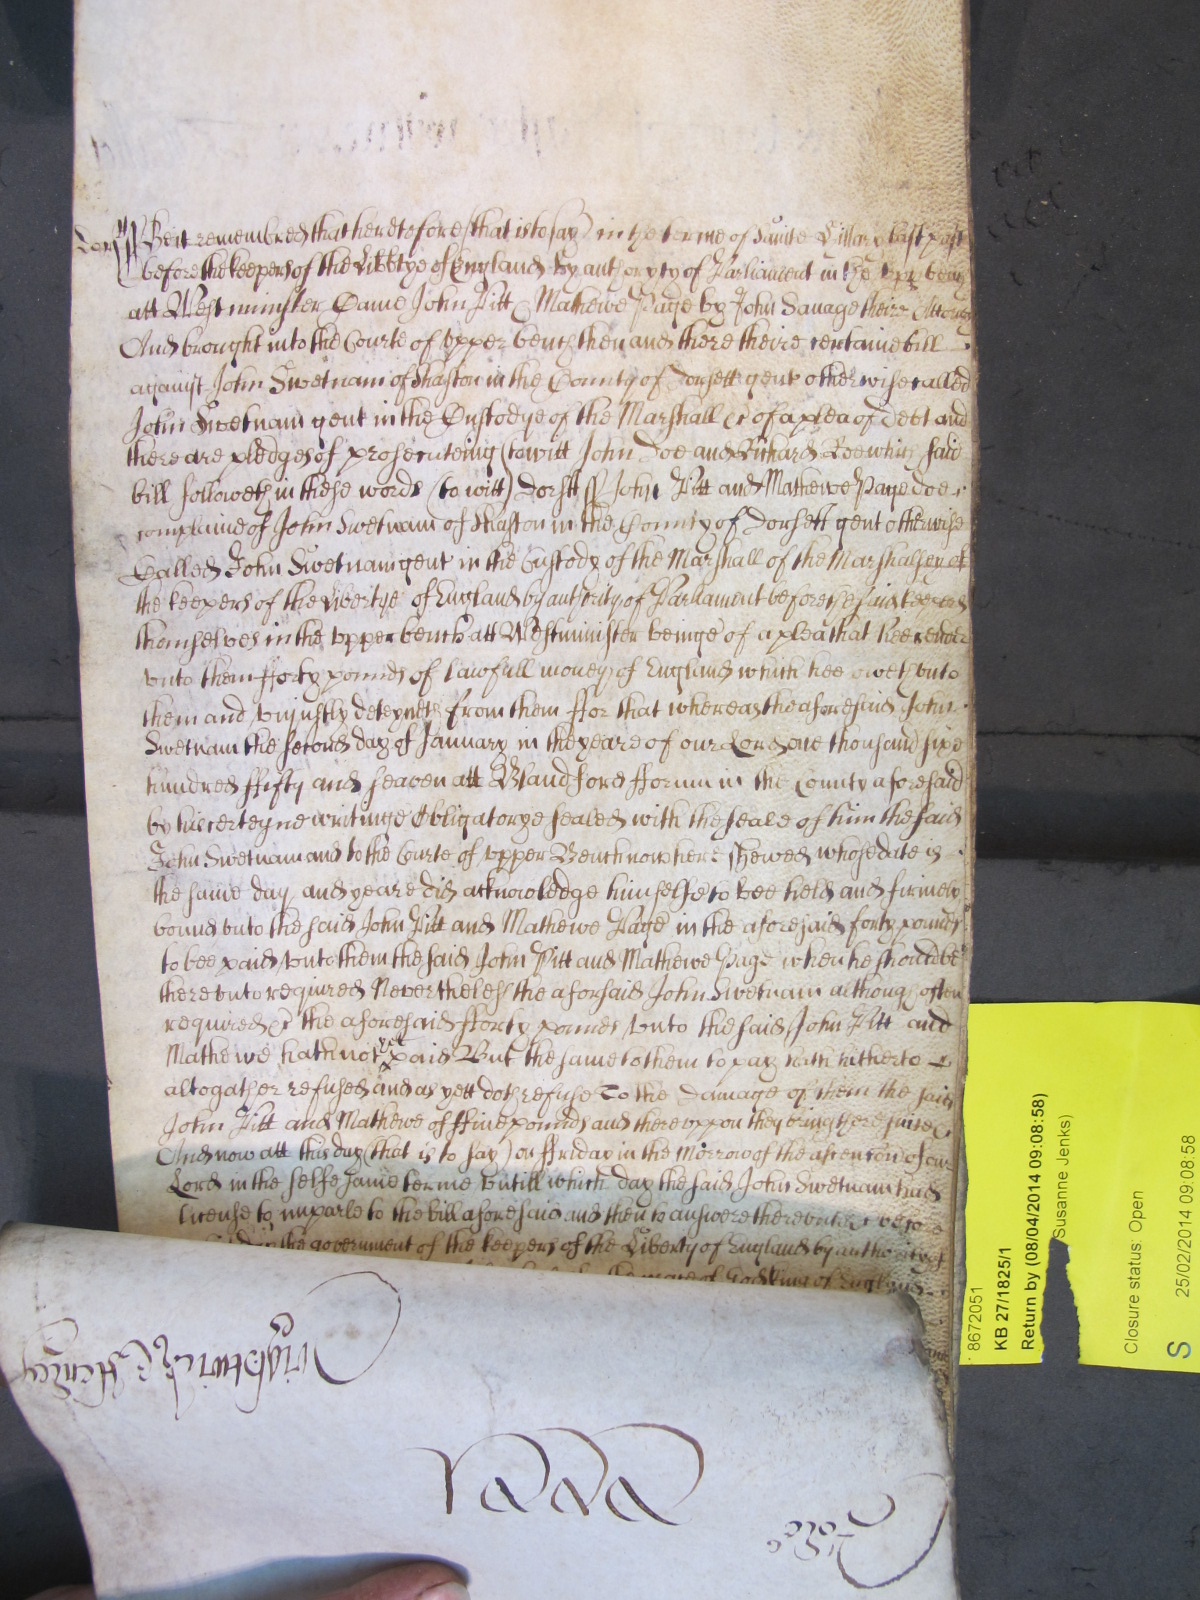 Dorss Beit remembred that heretofore (that is to say) in the terme of Sainte Hillary last past
before the keepers of the Libbtye of England by authoryty of Parliament in the upp bench
att Westminster Came John Pitt & Mathewe Page by John Savage theire Attorny
And brought into the Courte of upper bench then and there theire certaine bill
against John Swetnam of Shaston in the County of Dorsett gent otherwise called
John Swetnam gent in the Custodye of the Marshall &c of a plea of Debt and
there are pledges of prosecuteing (to witt John Doe and Richard Roe which said
bill followeth in these words (to witt) Dorstt ss John Pitt and Mathewe Page doe
complaine of John Swetnam of Shaston in the County of Dorsett gent otherwise
Called John Swetnam gent in the Custody of the Marshall of the Marshalsey of
the keepers of the Libertye of England by authority of Parliament before the said keepers
themselves in the upper bench att Westminister beinge of a plea that hee render
unto them fforty pounds of lawfull money of England which hee oweth unto
them and uniustly deteyneth from them ffor that whereas the aforesaid John
Swetnam the second day of January in the yeare of our Lord one thousand six
hundred ffifty and seaven att Blandford fforum in the County aforesaid
by his certeyne writinge Obligatorye sealed with the seale of him the said
John Swetnam and to the Courte of upper Bench now here shewed whose date is
the same day and yeare did acknowledge himselfe to bee held and firmely
bound unto the said John Pitt and Mathewe Page in the aforesaid forty pounds
to bee paid unto them the said John Pitt and Mathewe Page when he should be
thereunto required Neverthelesse the aforsaid John Swetnam although often
required &c the aforesaid fforty pounds unto the said John Pitt and
Mathewe hath not yet paid But the same to them to pay hath hitherto
altogather refused and as yett doth refuse To the Damage of them the said
John Pitt and Mathewe of ffive pounds and thereuppon they bring there suite &c
And now att this day (that is to say) on ffriday in the Morrow of the ascention of our
Lord in the selfe same terme untill which day the said John Swetnam had
license to imparle to the bill aforesaid and then to answere thereunto &c before
the government of the keepers of the Liberty of England by authority of
the grace of God King of England
Wightwick & Henley
8672051
KB 27/1825/1
Return by (08/04/2014 09:08:58)
Susanne Jenks)
Closure status: Open
S
25/02/2014 09:08:58